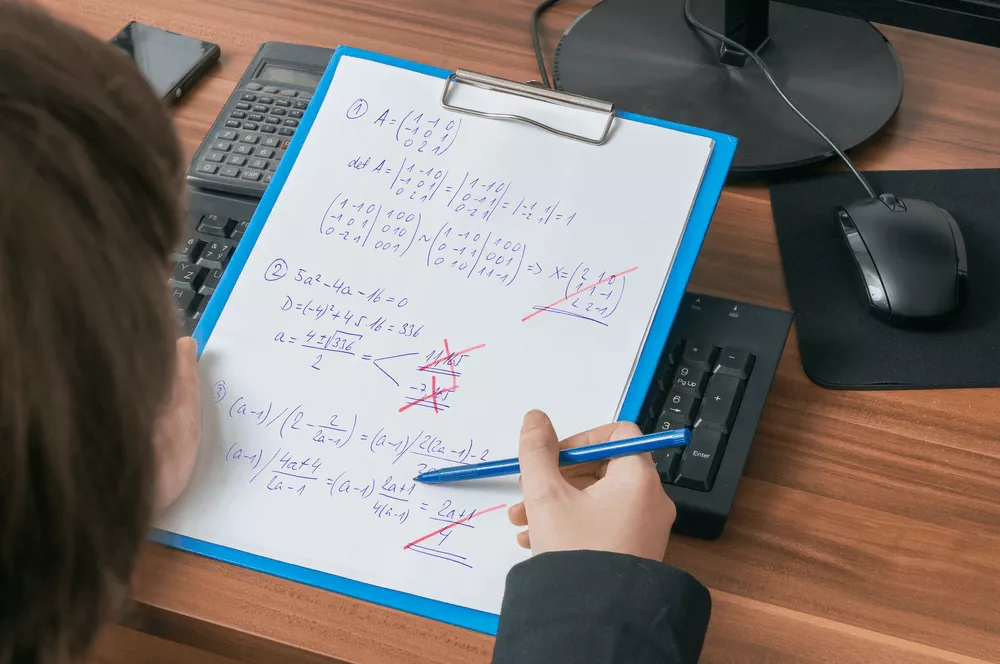 ① A = (1 -1 0
-1 0 1
0 2 1)
det A = |1 -1 0
-1 0 1
0 2 1| = |1 -1 0
0 -1 1
0 -2 1| = |-1 1
-2 1| = 1
(1 -1 0 | 1 0 0
-1 0 1 | 0 1 0
0 -2 1 | 0 0 1) ~ (1 -1 0 | 1 0 0
0 -1 1 | 0 0 1
0 1 0 | 1 1 -1) => X = (2 1 0
1 1 -1
2 2 -1)
② 5a² - 4a - 16 = 0
D = (-4)² + 4·5·16 = 336
a = 4 ± √336 / 2 =
③ (a-1) / (2 - 2/2a-1) = (a-1) / 2(2a-1)-2
(a-1) / 4a+4/2a-1 = (a-1) 2a+1/4(a-1) = 2a+1/4
9
Pg Up
6
+
-
Enter